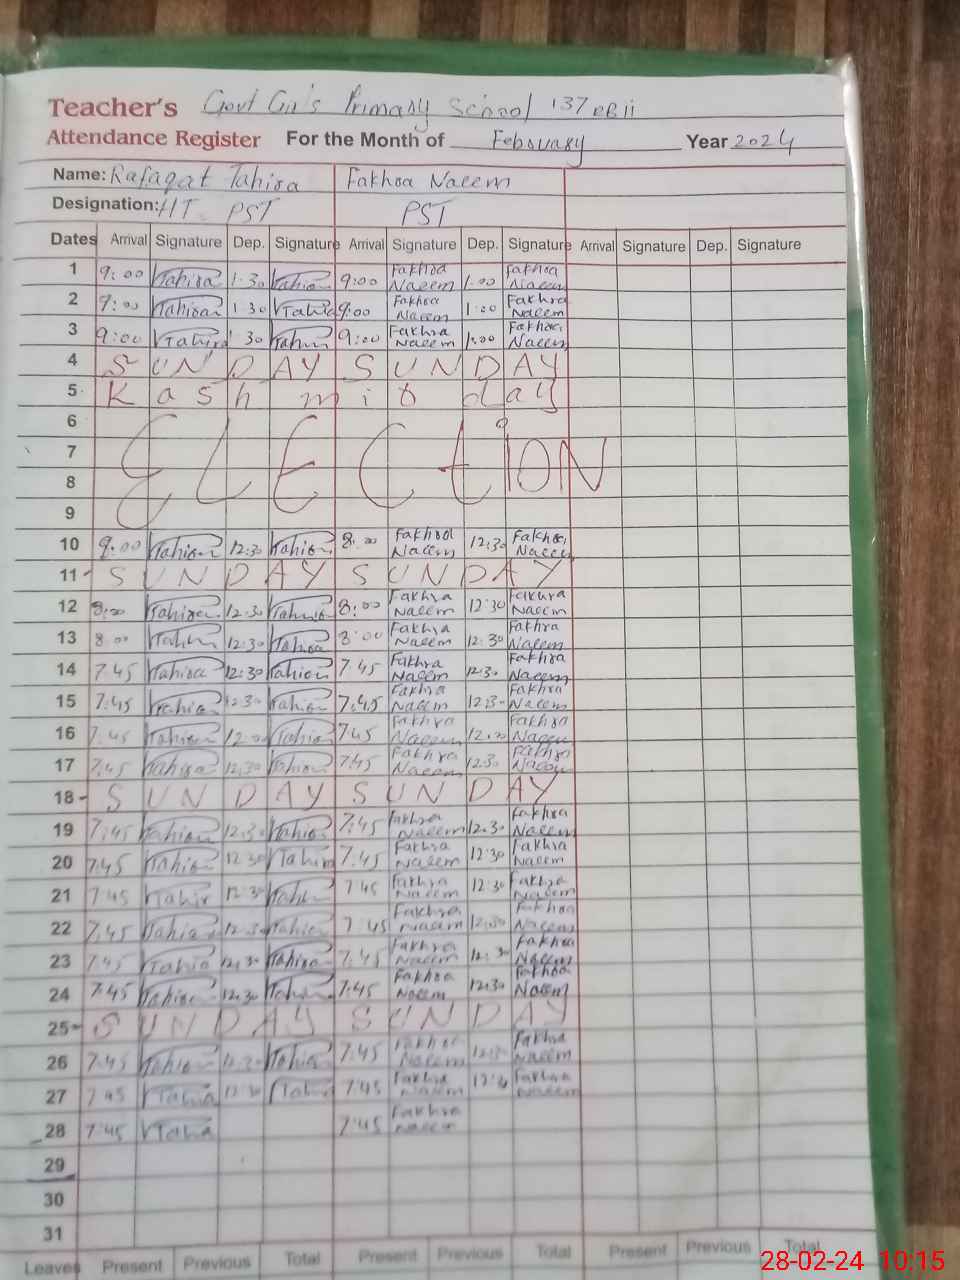 Teacher's Govt Girls Primary School 137 EB ii
Attendance Register For the Month of February Year 2024
Name: Rafaqat Tahira Fakhra Naeem
Designation: HT PST PST
Dates Arrival Signature Dep. Signature Arrival Signature Dep. Signature Arrival Signature Dep. Signature
1 9:00 Tahira 1.30 Tahira 9:00 Fakhra Naeem 1.00 Fakhra Naeem
2 9:00 Tahira 1.30 Tahira 9:00 Fakhra Naeem 1:00 Fakhra Naeem
3 9:00 Tahira 30 Tahira 9:00 Fakhra Naeem 1:00 Fakhra Naeem
4 SUNDAY SUNDAY
5 Kashmir day
6
7 ELECtION
8
9
10 9:00 Tahira 12:30 Tahira 8:00 Fakhra Naeem 12:30 Fakhra Naeem
11 SUNDAY SUNDAY
12 8:00 Tahira 12.30 Tahira 8:00 Fakhra Naeem 12:30 Fakhra Naeem
13 8:00 Tahira 12.30 Tahira 8:00 Fakhra Naeem 12:30 Fakhra Naeem
14 7.45 Tahira 12:30 Tahira 7.45 Fakhra Naeem 12:30 Fakhra Naeem
15 7:45 Tahira 12.30 Tahira 7:45 Fakhra Naeem 12:30 Fakhra Naeem
16 7:45 Tahira 12:00 Tahira 7:45 Fakhra Naeem 12:00 Fakhra Naeem
17 7:45 Tahira 12.30 Tahira 7:45 Fakhra Naeem 12.30 Fakhra Naeem
18 SUNDAY SUNDAY
19 7:45 Tahira 12.30 Tahira 7:45 Fakhra Naeem 12.30 Fakhra Naeem
20 7:45 Tahira 12:30 Tahira 7:45 Fakhra Naeem 12:30 Fakhra Naeem
21 7:45 Tahira 12:30 Tahira 7:45 Fakhra Naeem 12:30 Fakhra Naeem
22 7:45 Tahira 12.30 Tahira 7:45 Fakhra Naeem 12:30 Fakhra Naeem
23 7:45 Tahira 12.30 Tahira 7:45 Fakhra Naeem 12:30 Fakhra Naeem
24 7:45 Tahira 12:30 Tahira 7:45 Fakhra Naeem 12:30 Fakhra Naeem
25 SUNDAY SUNDAY
26 7:45 Tahira 12:30 Tahira 7:45 Fakhra Naeem 12:30 Fakhra Naeem
27 7:45 Tahira 12:30 Tahira 7:45 Fakhra Naeem 12:30 Fakhra Naeem
28 7:45 Tahira 7:45 Fakhra Naeem
29
30
31
Leaves Present Previous Total Present Previous Total Present Previous Total
28-02-24 10:15